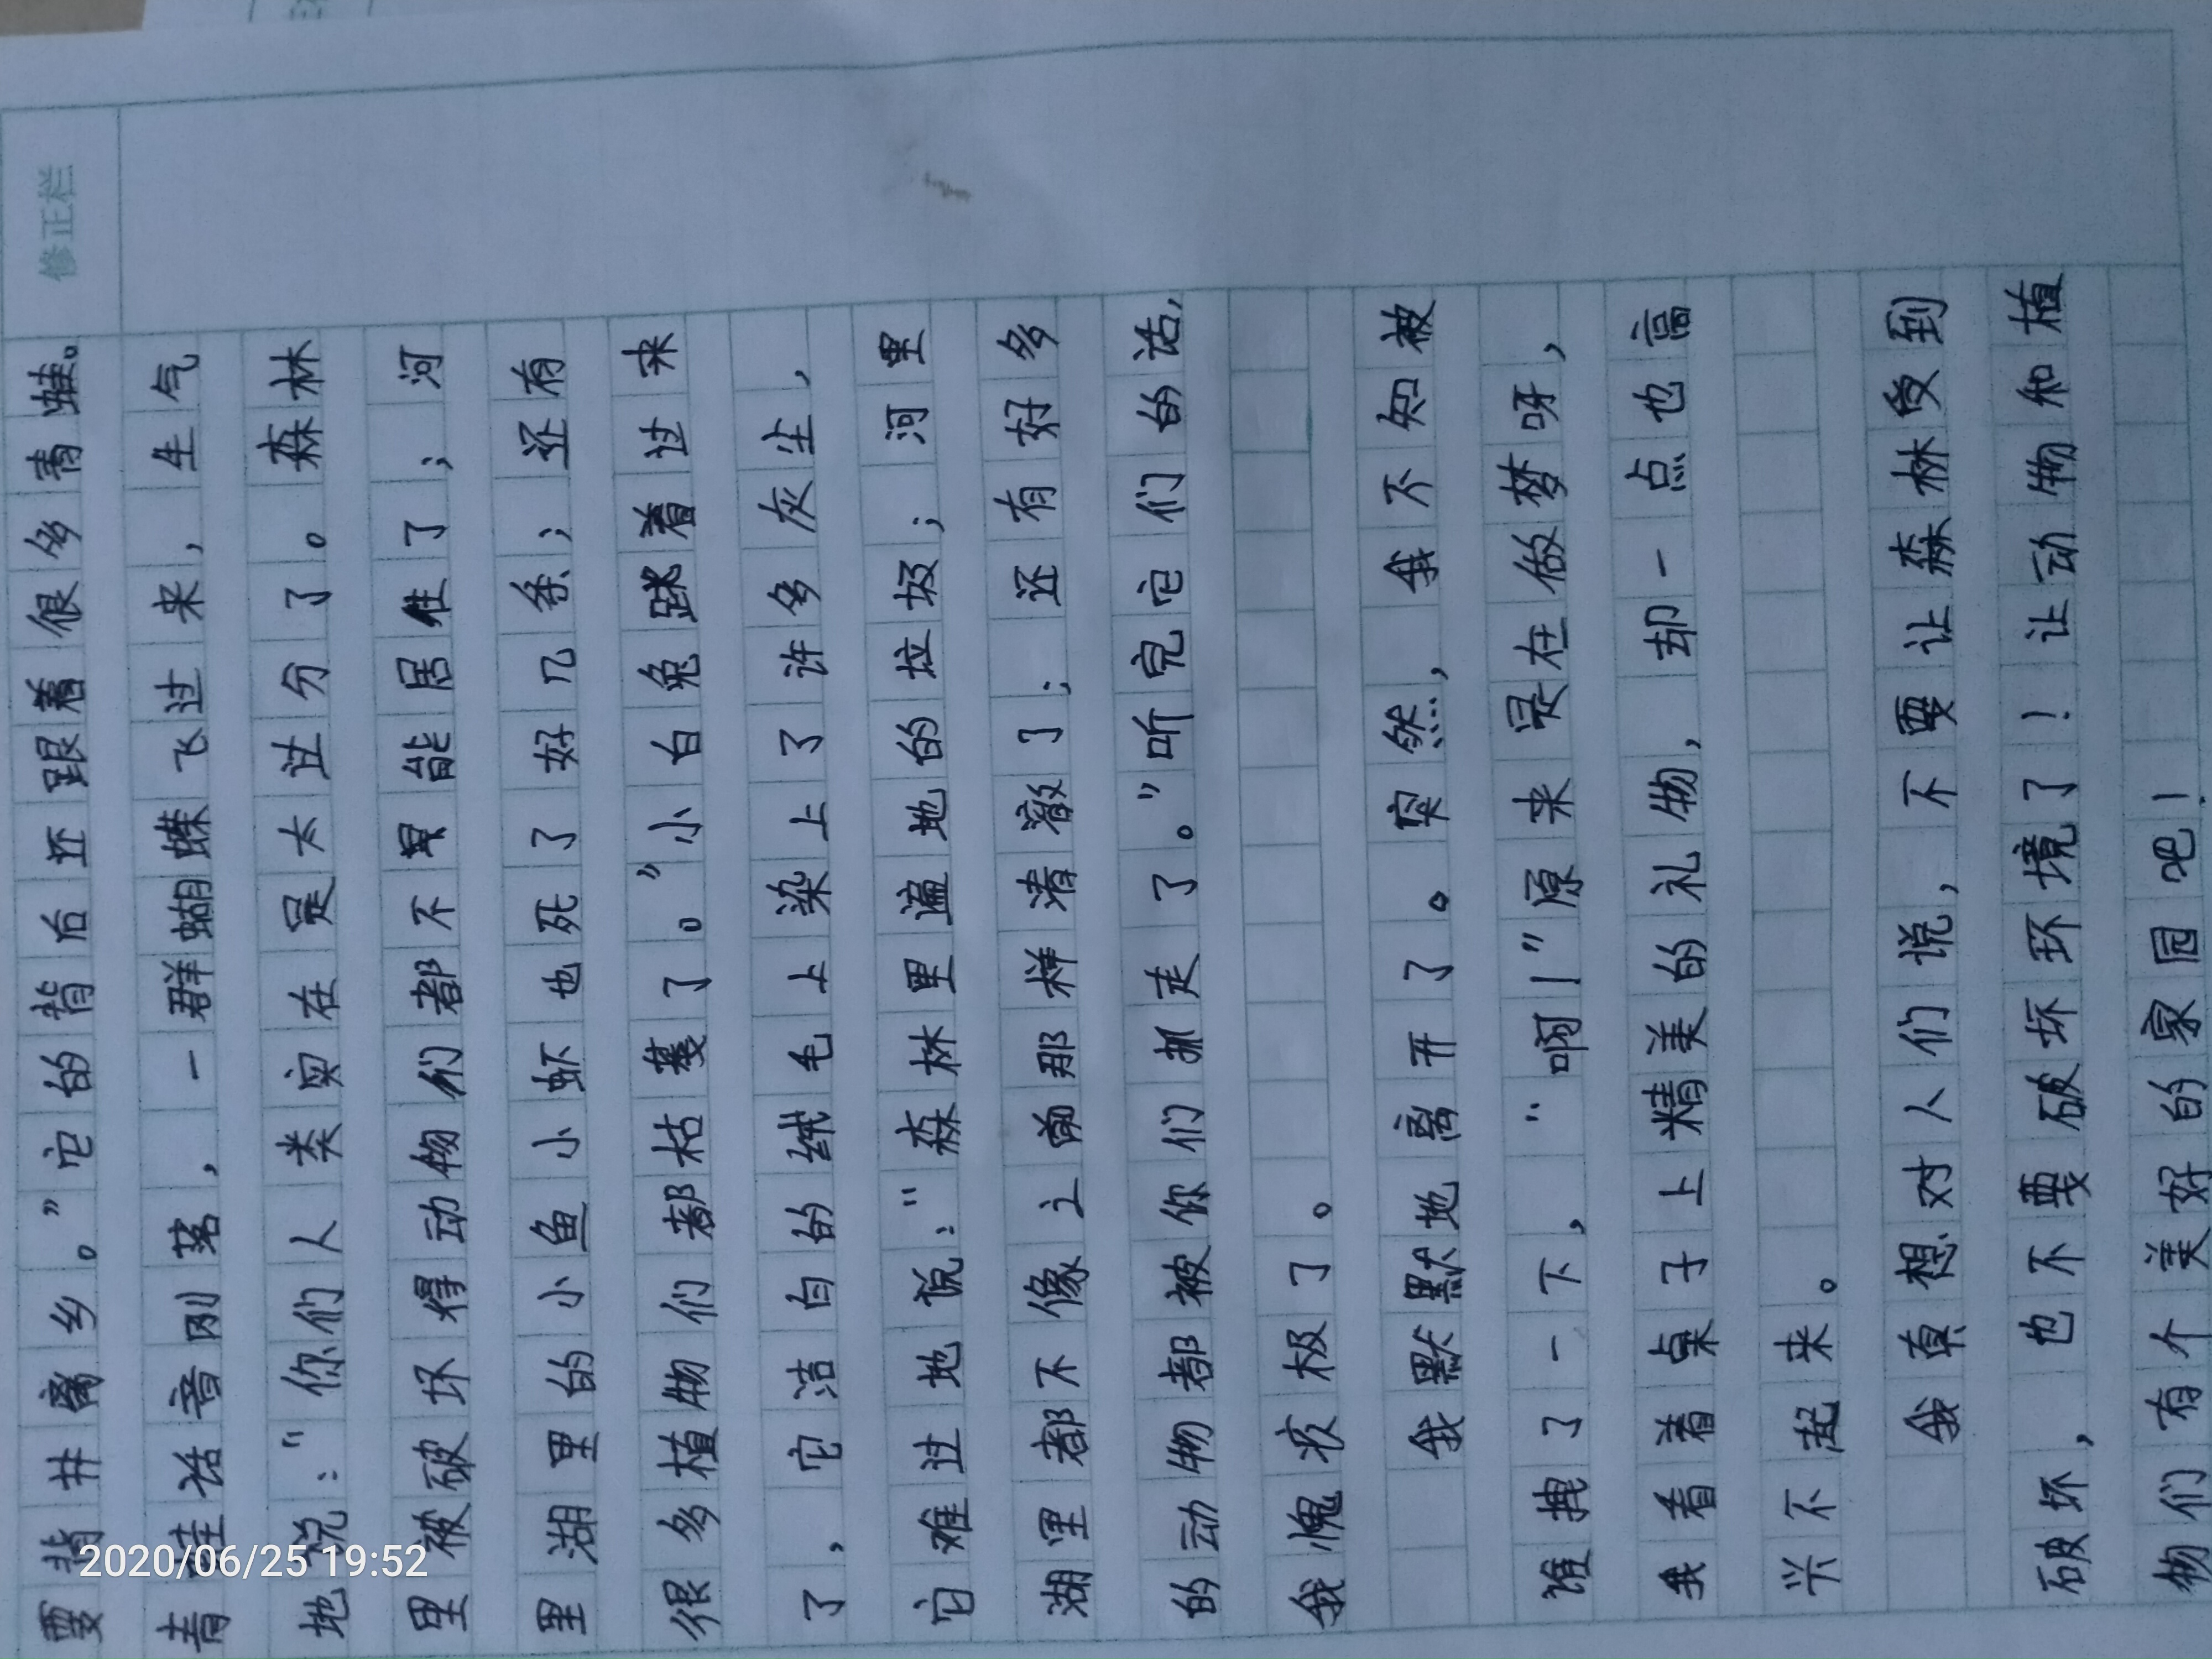 修正栏
要背井离乡。”它的背后还跟着很多青蛙。
青蛙话音刚落，一群蝴蝶飞过来，生气
地说：“你们人类实在是太过分了。森林
里被破坏得动物们都不能居住了；河
里湖里的小鱼小虾也死了好几条；还有
很多植物们都枯萎了。”小白兔跳着过来
了，它洁白的绒毛上染上了许多灰尘，
它难过地说：“森林里遍地的垃圾；河里
湖里都不像之前那样清澈了；还有好多
的动物都被你们抓走了。”听完它们的话，
我愧疚极了。
我默默地离开了。突然，我不知被
谁拽了一下，“啊！”原来是在做梦呀，
我看着桌子上精美的礼物，却一点也高
兴不起来。
我真想对人们说，不要让森林受到
破坏，也不要破坏环境了！让动物和植
物们有个美好的家园吧！
2020/06/25 19:52